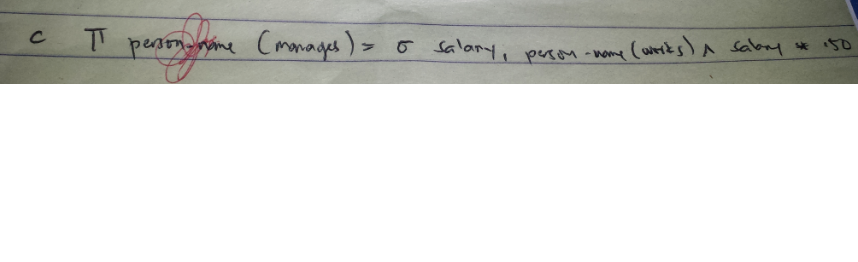 C π person-name (manages) = σ salary, person-name (works) ∧ salary * .50